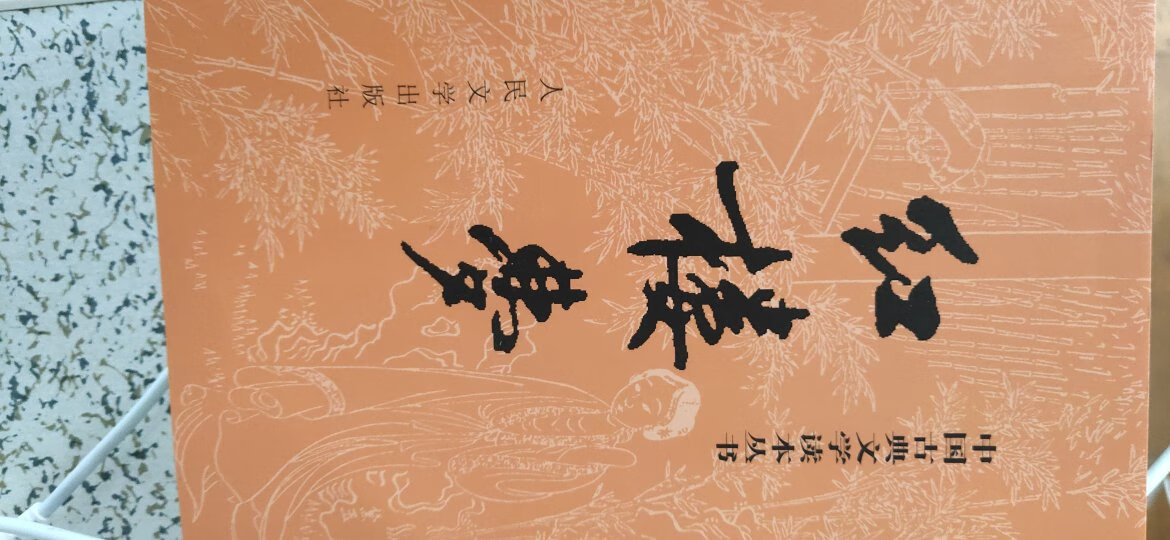 中国古典文学读本丛书
紅樓夢
人民文学出版社